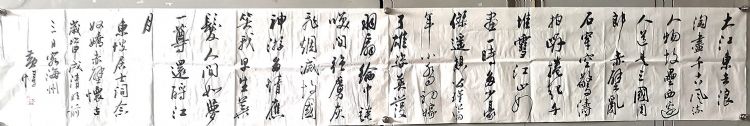 大江東去浪
淘盡千古風流
人物故壘西邊
人道是三國周
郎赤壁亂
石穿空驚濤
拍岸捲起千
堆雪江山如
畫一時多少豪
傑遙想公瑾當
年小喬初嫁
了雄姿英發
羽扇綸巾談
笑間強虜灰
飛煙滅故國
神遊多情應
笑我早生華
髮人間如夢
一尊還酹江
月
東坡居士詞念
奴嬌赤壁懷古
歲甲戌清明前
三日客海州